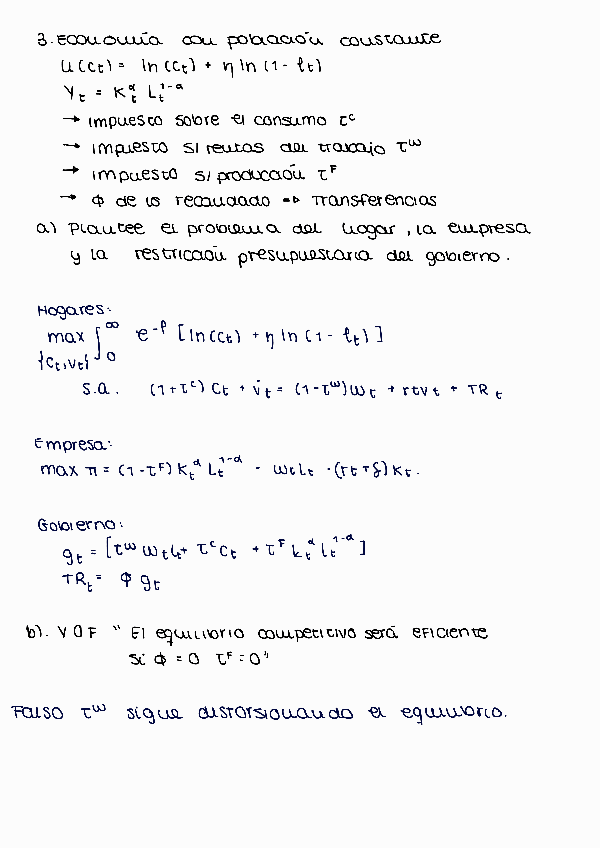 3. Economía con población constante
u(ct) = ln(ct) + η ln(1-ℓt)
Yt = Kt^α Lt^1-α
→ impuesto sobre el consumo τ^c
→ impuesto s/ rentas del trabajo τ^w
→ impuesto s/ producción τ^F
→ Φ de lo recaudado => Transferencias
a) Plantee el problema del hogar, la empresa
y la restricción presupuestaria del gobierno.
Hogares:
max ∫0^∞ e^-ρ [ln(ct) + η ln(1-ℓt)]
{ct, vt}
s.a. (1+τ^c) ct + v̇t = (1-τ^w)wt + rtvt + TRt
Empresa:
max π = (1-τ^F) Kt^α Lt^1-α - wtLt -(rt+δ)Kt.
Gobierno:
gt = [τ^w wtLt + τ^c ct + τ^F kt^α lt^1-α]
TRt = Φ gt
b). V O F " El equilibrio competitivo será eficiente
si Φ = 0 τ^F = 0"
Falso τ^w sigue distorsionando el equilibrio.